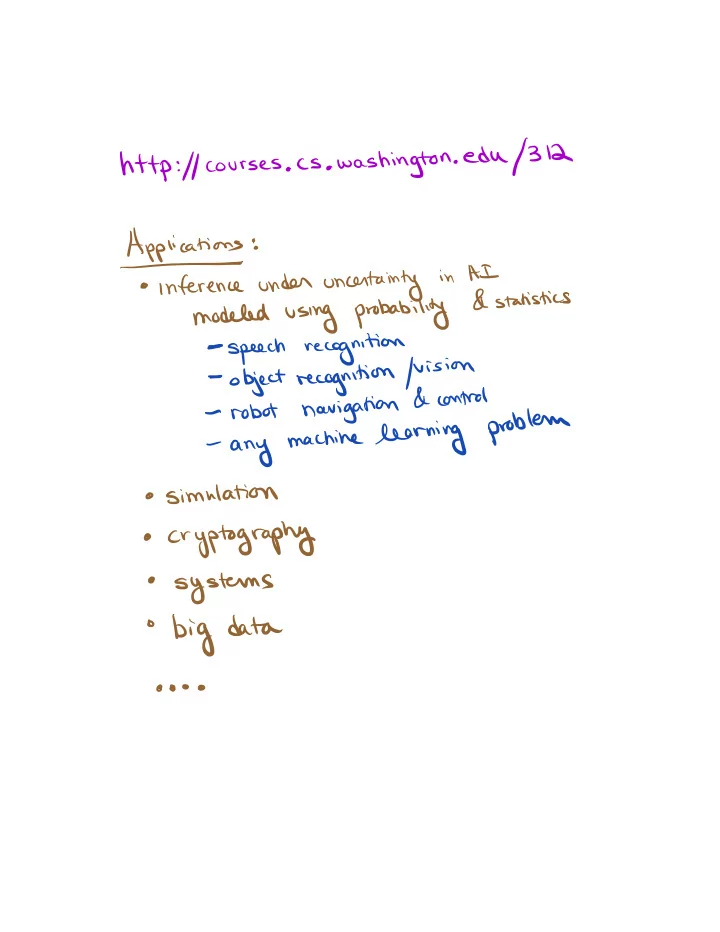 http://courses.cs.washington.edu/312
Applications:
• inference under uncertainty in AI
modeled using probability & statistics
– speech recognition
– object recognition/vision
– robot navigation & control
– any machine learning problem
• simulation
• cryptography
• systems
• big data
....